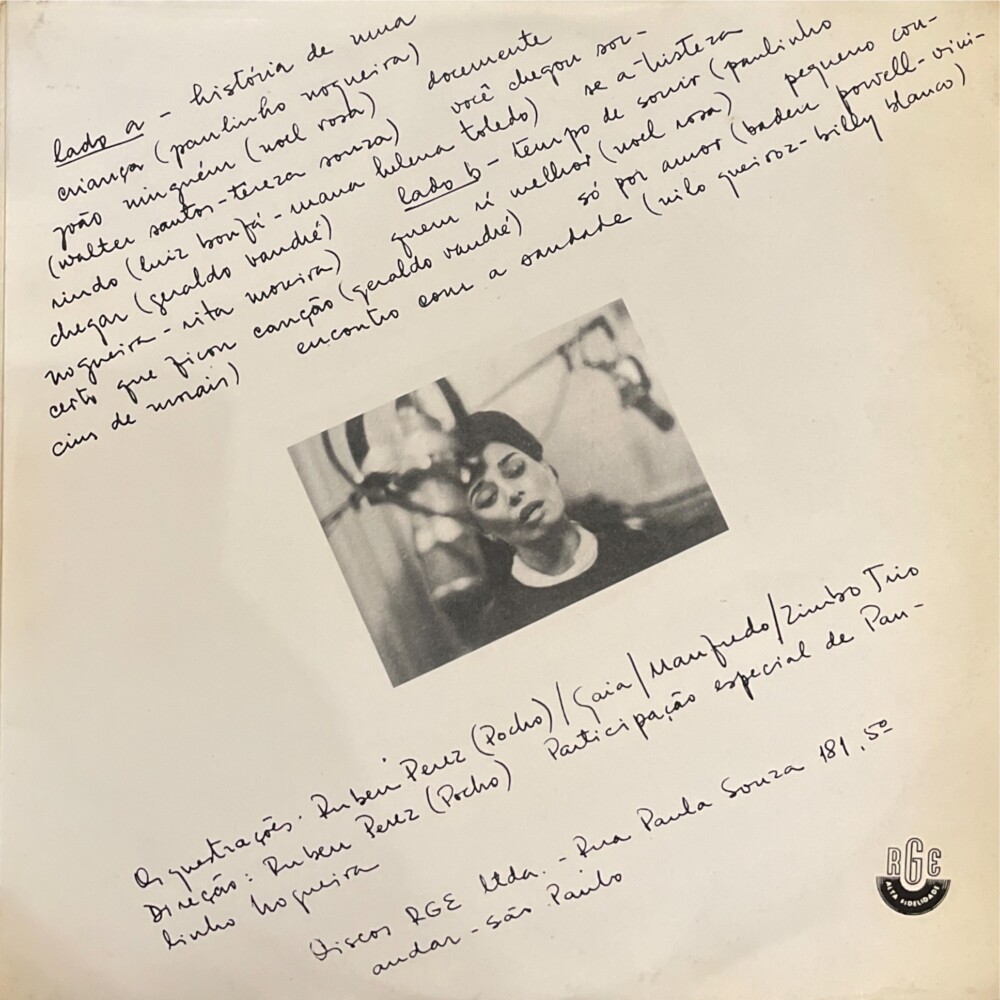 lado a - história de uma
criança (paulinho nogueira)
joão ninguém (noel rosa) docemente
(walter santos-tereza souza) você chegou sor-
rindo (luiz bonfá-maria helena toledo) se a tristeza
chegar (geraldo vandré) lado b - tempo de sorrir (paulinho
nogueira - rita moreira) quem ri melhor (noel rosa) pequeno con-
certo que ficou canção (geraldo vandré) só por amor (baden powell-vini-
cius de morais) encontro com a saudade (nilo queiroz-billy blanco)
Orquestrações: Ruben Perez (Pocho)/Gaia/Manfredo/Zimbo Trio
Direção: Ruben Perez (Pocho) Participação especial de Pau-
linho Nogueira
Discos RGE Ltda. - Rua Paula Souza 181, 5º
andar - são Paulo
RGE
ALTA FIDELIDADE